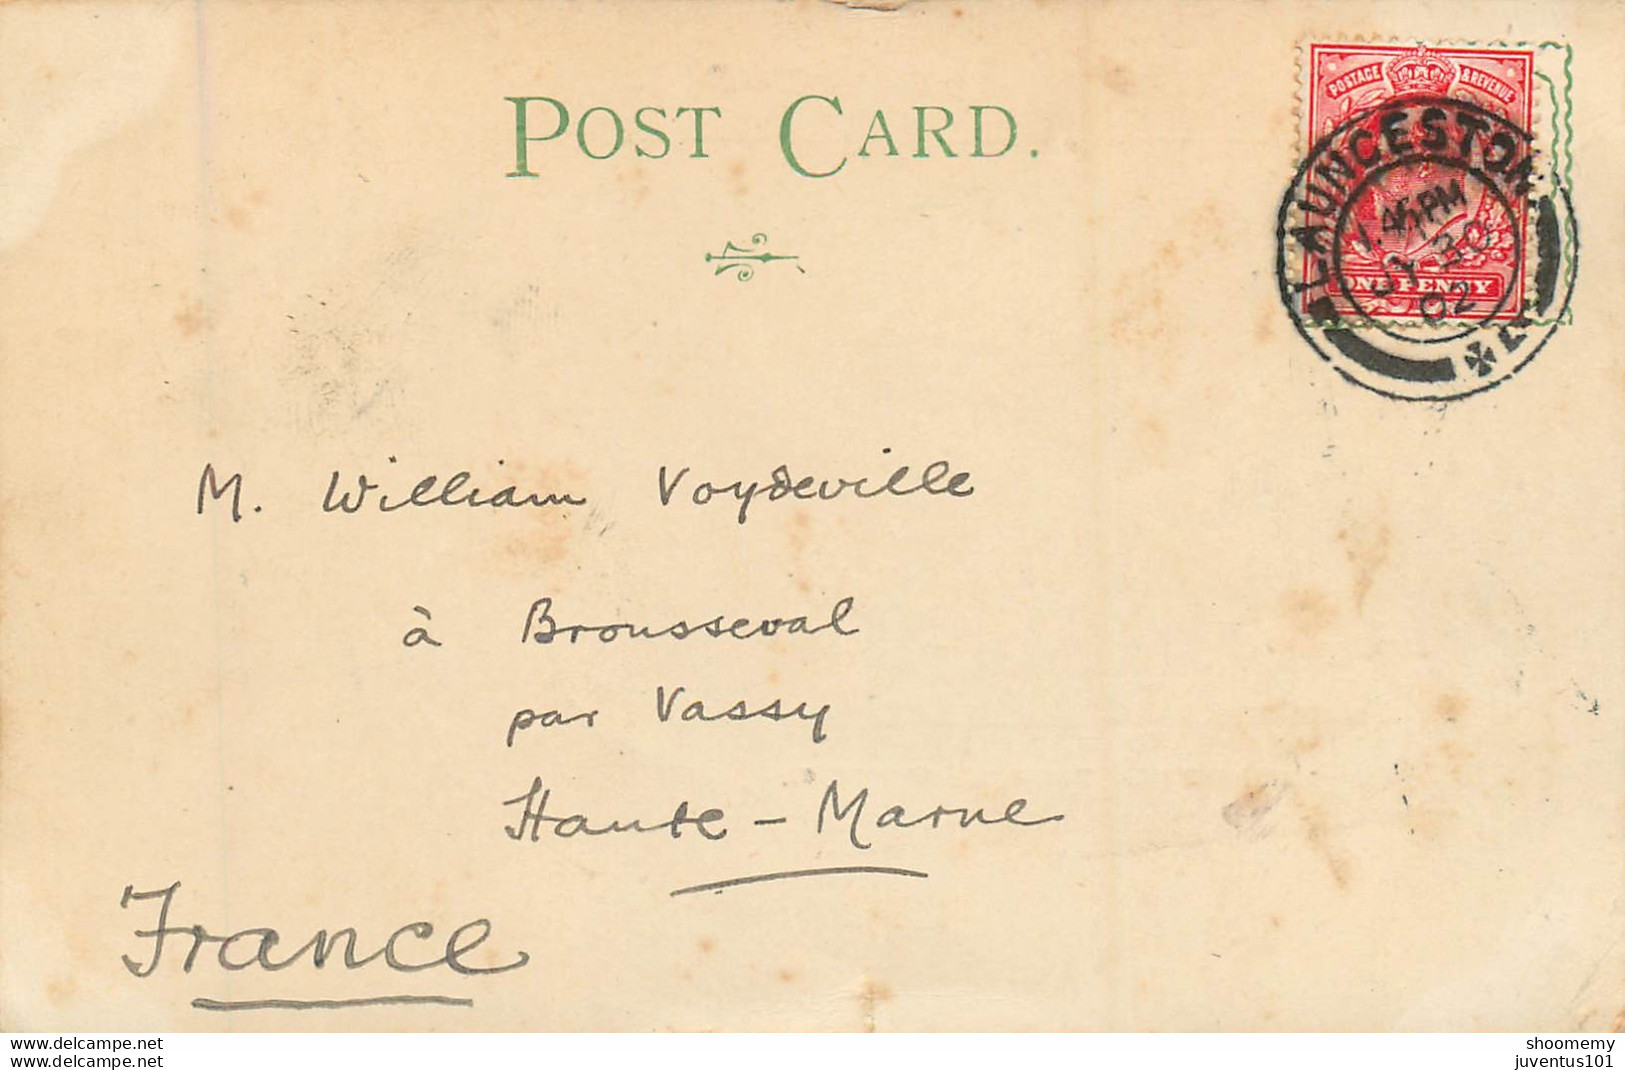 POST CARD.
POSTAGE & REVENUE
LAUNCESTON
1.45 PM
JY 30
02
ONE PENNY
M. William Voydeville
à Brousseval
par Vassy
Haute-Marne
France
delcampe.net
delcampe.net
shoomemy
juventus101